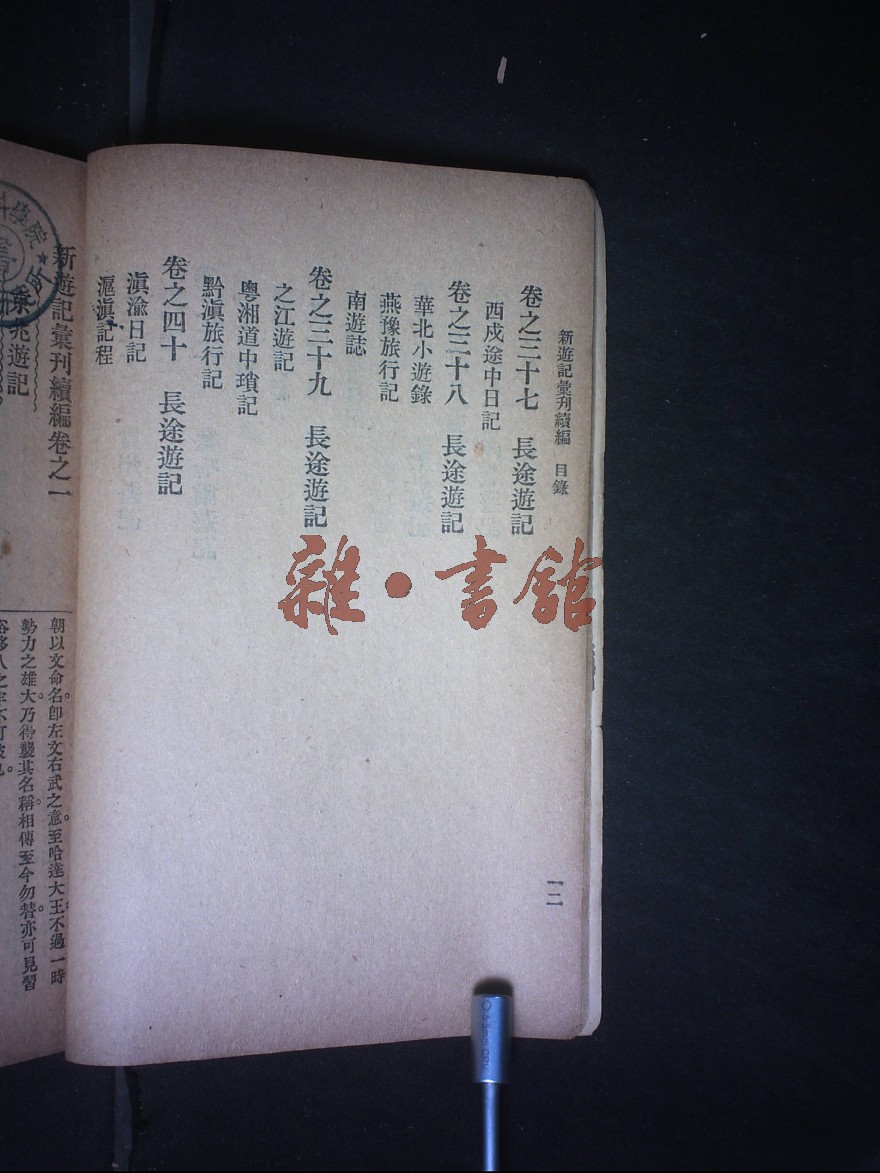 新遊記彙刊續編　目錄
卷之三十七　長途遊記
西戍途中日記
卷之三十八　長途遊記
華北小遊錄
燕豫旅行記
南遊誌
卷之三十九　長途遊記
之江遊記
粵湘道中瑣記
黔滇旅行記
卷之四十　長途遊記
滇渝日記
滬滇記程
一二
雜・書館
新遊記彙刊續編卷之一
遊記
朝以文命名。卽左文右武之意。至哈達大王。不過一時
勢力之雄大。乃得襲其名稱。相傳至今勿替。亦可見習
學院